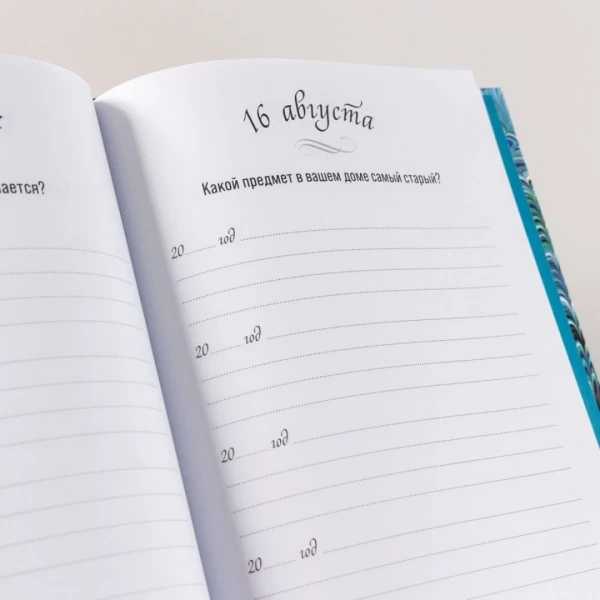 16 августа
Какой предмет в вашем доме самый старый?
20 год
20 год
20 год
20 год